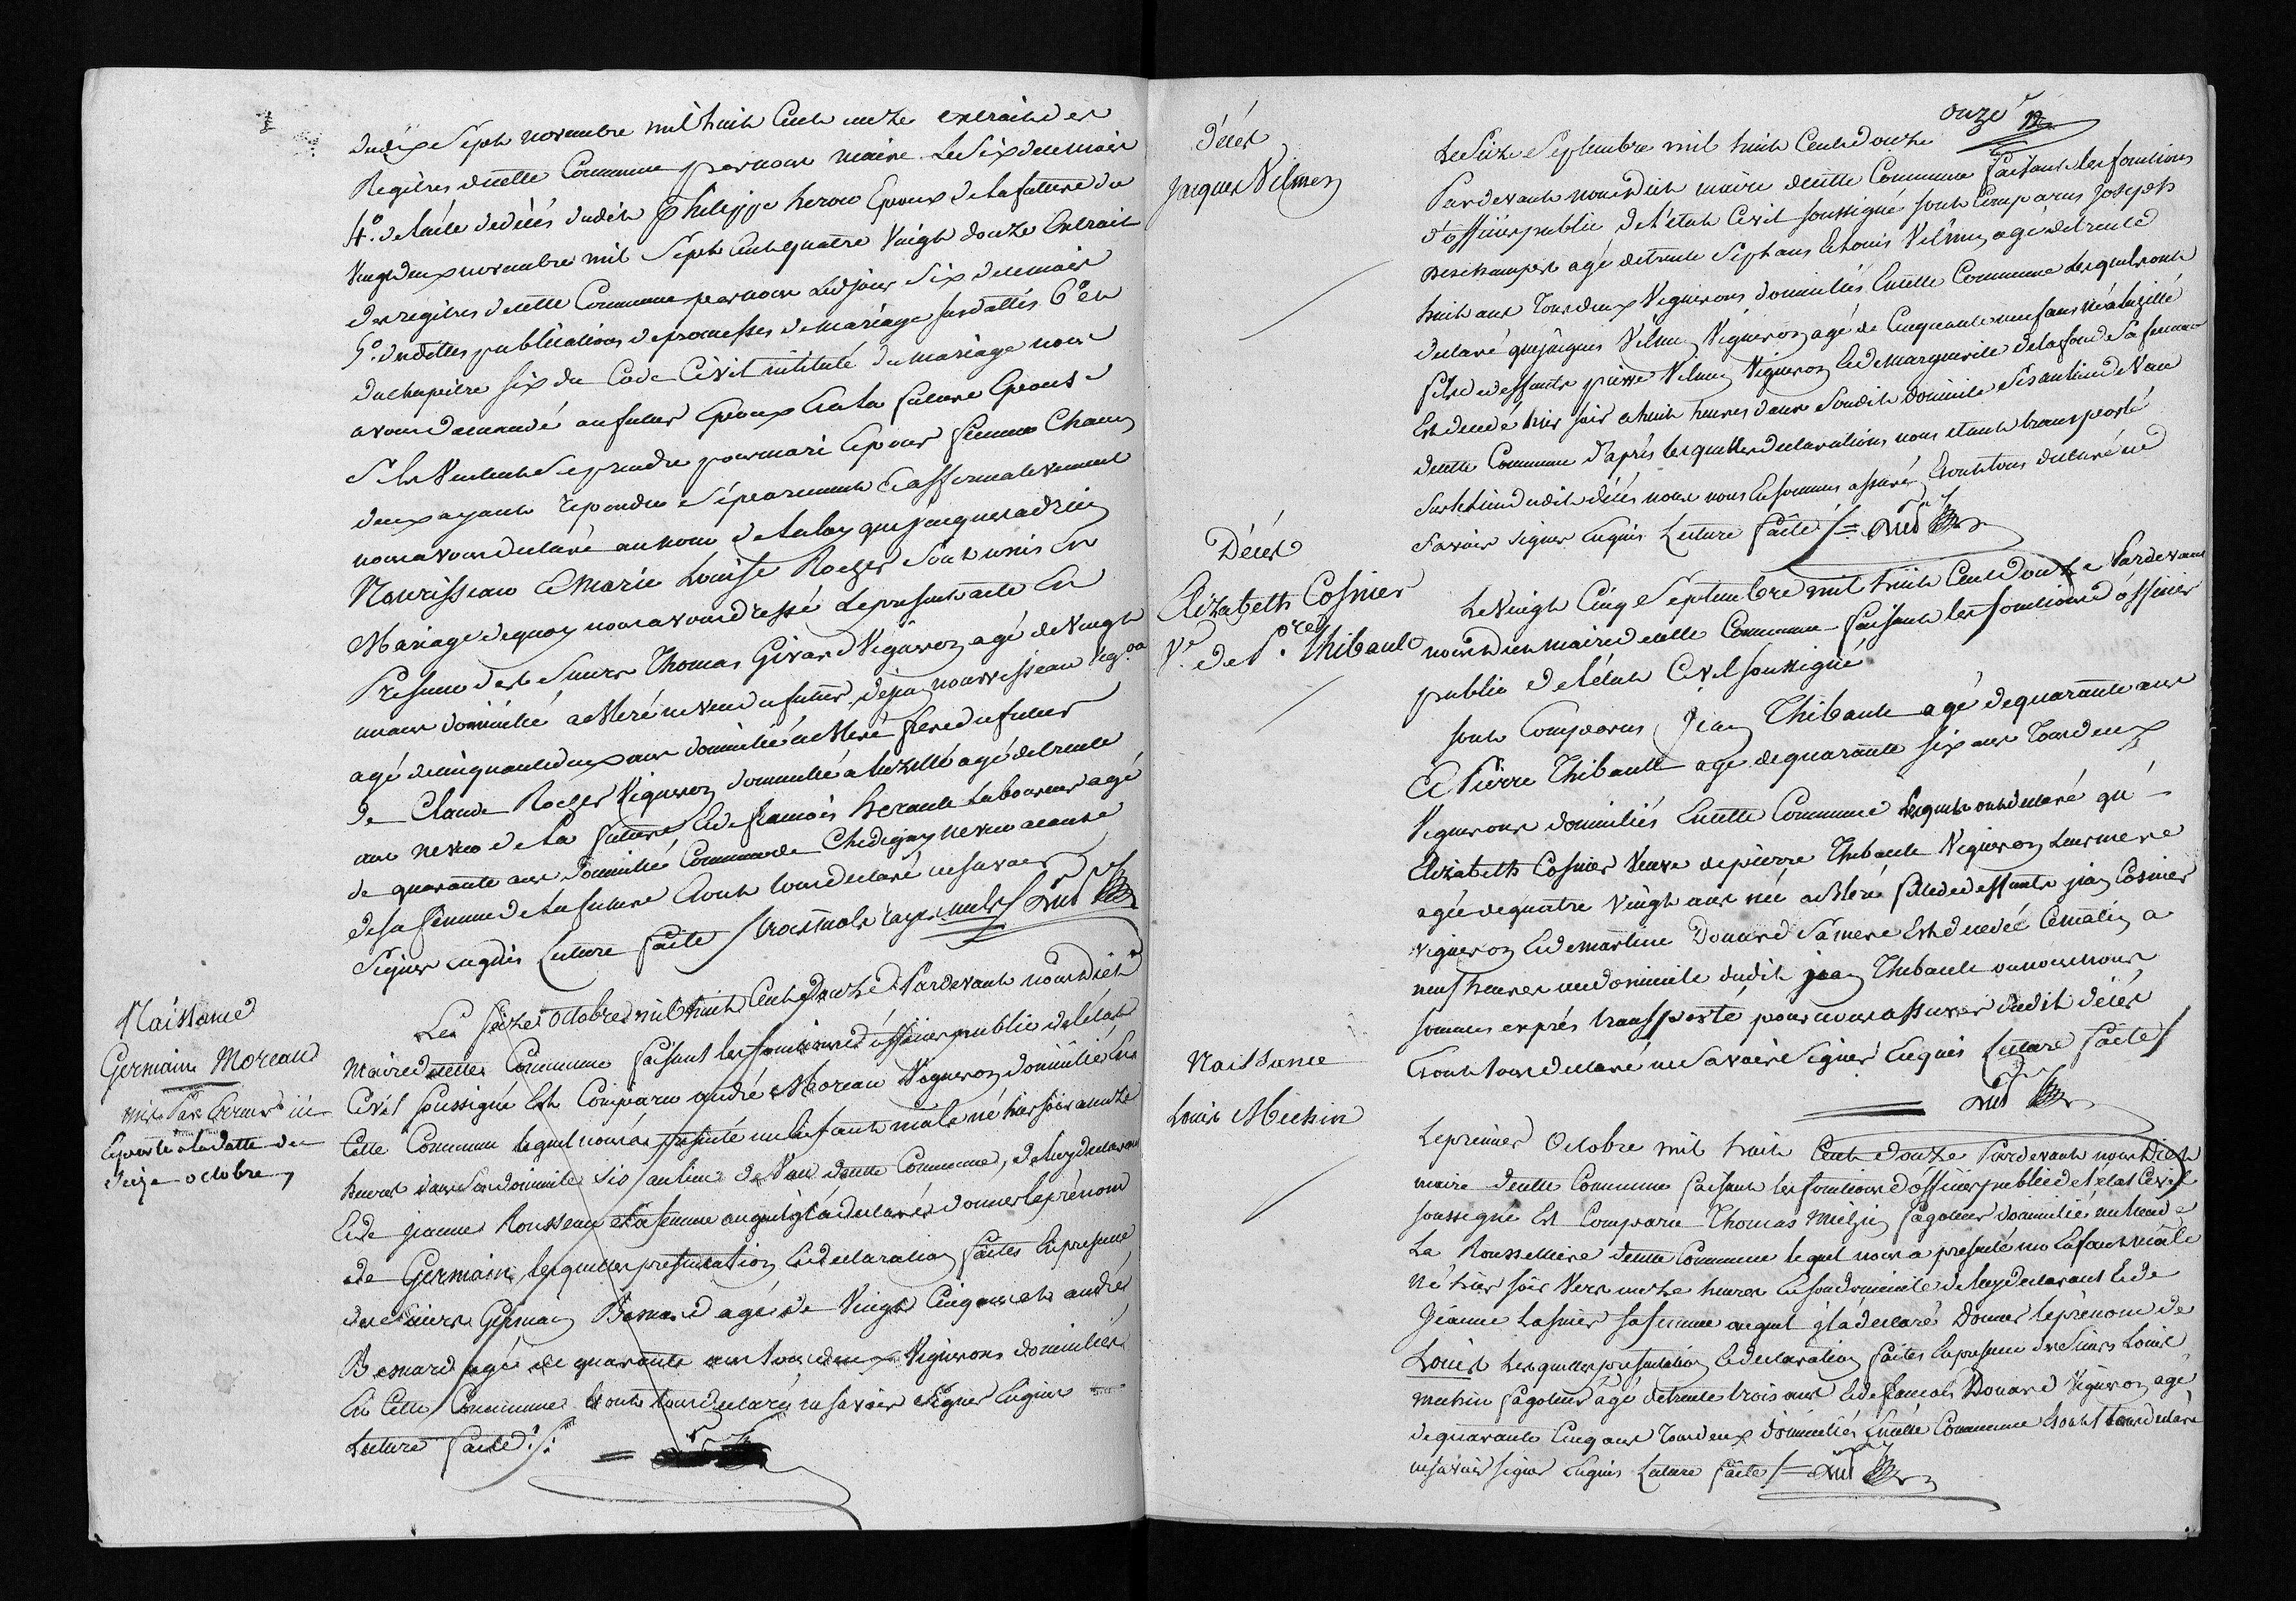 du dix Sept novembre mil huit Cent onze extrait des
Registres de cette Commune par nous maire Le Six du mois
4º. de l'acte de décès dudit Philippe herou Epoux de la future du
Vingt deux novembre mil Sept Cent quatre Vingt douze Extrait
des registres de cette Commune par nous Ledit jour Six du mois
5º. desdittes publications de promesses de mariage susdattés 6º en
du chapitre Six du Code Civil intitulé du mariage nous
avons demandé au futur Epoux Et a la future Epouse
S'ils Veulent Se prendre pour mari Et pour femme Chacun
deux ayant repondu Séparément Et affirmativement
nous avons declaré au nom de la loy que jacques adrien
Nourisseau Et Marie Louise Roches Sont unis En
Mariage de quoy nous avons dressé Le present acte En
Presence des Sieurs Thomas Girard Vigneron agé de Vingt
un ans domicilié a neveu du futur, nourisseau Vig.on
agé de cinquante deux ans domicilié a frere du futur
de Claude Roches Vigneron domicilié a Luzillé agé de trente
ans neveu de la future Et de francois herault Laboureur agé
de quarante ans Domicilié Commune de Chedigny neveu acause
de sa femme de la future Et ont tous declaré ne savoir
Signer enquis Lecture faite / trois mots rayés nuls /
Naissance
Germain Moreau
mis Par Erreur ici
Et porté a la datte du
Seize octobre
Les Seize octobre mil huit Cent Douze Pardevant nous dit
Maire de cette Commune faisant les fonctions d'officier public de l'état
Civil soussigné Est Comparu andré Moreau Vigneron domicilié En
Cette Commune Lequel nous a présenté un Enfant mâle né hier soir a onze
heures dans Son domicile Sis au lieu de Vau de cette Commune, de luy declarant
Et de jeanne Rousseau sa femme auquel il a declaré donner le prénom
de Germain, les quelles presentation Et declaration faites En presence
des Sieurs Germain Besnard agé de Vingt Cinq ans et andré
Besnard agé de quarante ans tous deux Vignerons domiciliés
En Cette Commune Et ont tous declaré ne savoir Signer Enquis
Lecture faite /:
onze
décès
Jacques Vilmen
Le Seize Septembre mil huit Cent Douze
Pardevant nous dit maire de cette Commune faisant les fonctions
d'officier public de l'état Civil soussigné sont Comparus Joseph
Deschamps agé de trente Sept ans Et Louis Vilmen agé de trente
huit ans Tous deux Vignerons domiciliés En cette Commune Lesquels ont
declaré que jacques Vilmen Vigneron agé de Cinquante neuf ans né a Luzillé
fils de deffunts pierre Vilmen Vigneron Et de marguerite delafond Sa femme
Est decedé hier soir a huit heures dans Son dit domicile Sis au lieu de Vau
de cette Commune d'après lesquelles declarations nous etant transporté
Sur le lieu dudit décès nous nous En sommes assuré, Et ont tous declaré ne
Savoir Signer Enquis Lecture faite /=
Décès
Elizabeth Cosnier
Ve. de P.re Thibault
Le Vingt Cinq Septembre mil huit Cent Douze Pardevant
nous dit maire de cette Commune faisant les fonctions d'officier
public de l'état Civil soussigné
sont Comparus Jean Thibault agé de quarante ans
Et Pierre Thibault agé de quarante six ans Tous deux
Vignerons domiciliés En cette Commune Lesquels ont declaré qu'
Elizabeth Cosnier Veuve de pierre Thibault Vigneron Leur mere
agée de quatre Vingt ans née a fille de deffunts jean Cosnier
vigneron Et de martine Douard Sa mere Est decedée Ce matin a
neuf heures au domicile dudit jean Thibault ou nous nous
sommes exprés transporté pour nous assurer dudit décès
Et ont tous declaré ne Savoir Signer Enquis Lecture faite /
Naissance
Louis Mechin
Le premier Octobre mil huit Cent douze Pardevant nous dit
maire de cette Commune faisant les fonctions d'officier public de l'état Civil
soussigné Est Comparu Thomas Mechin fagoteur domicilié au lieu de
La Rousseliere de cette Commune lequel nous a presenté un Enfant mâle
Né hier soir Vers onze heures En son domicile de luy declarant Et de
Jeanne Lasnier sa femme auquel il a declaré Donner le prénom de
Louis Lesquelles presentation Et declaration faites En presence des Sieurs Louis
mechin fagoteur agé de trente trois ans Et de francois Douard Vigneron agé
de quarante Cinq ans Tous deux domiciliés En cette Commune Et ont tous declaré
ne savoir signer Enquis Lecture faite /=